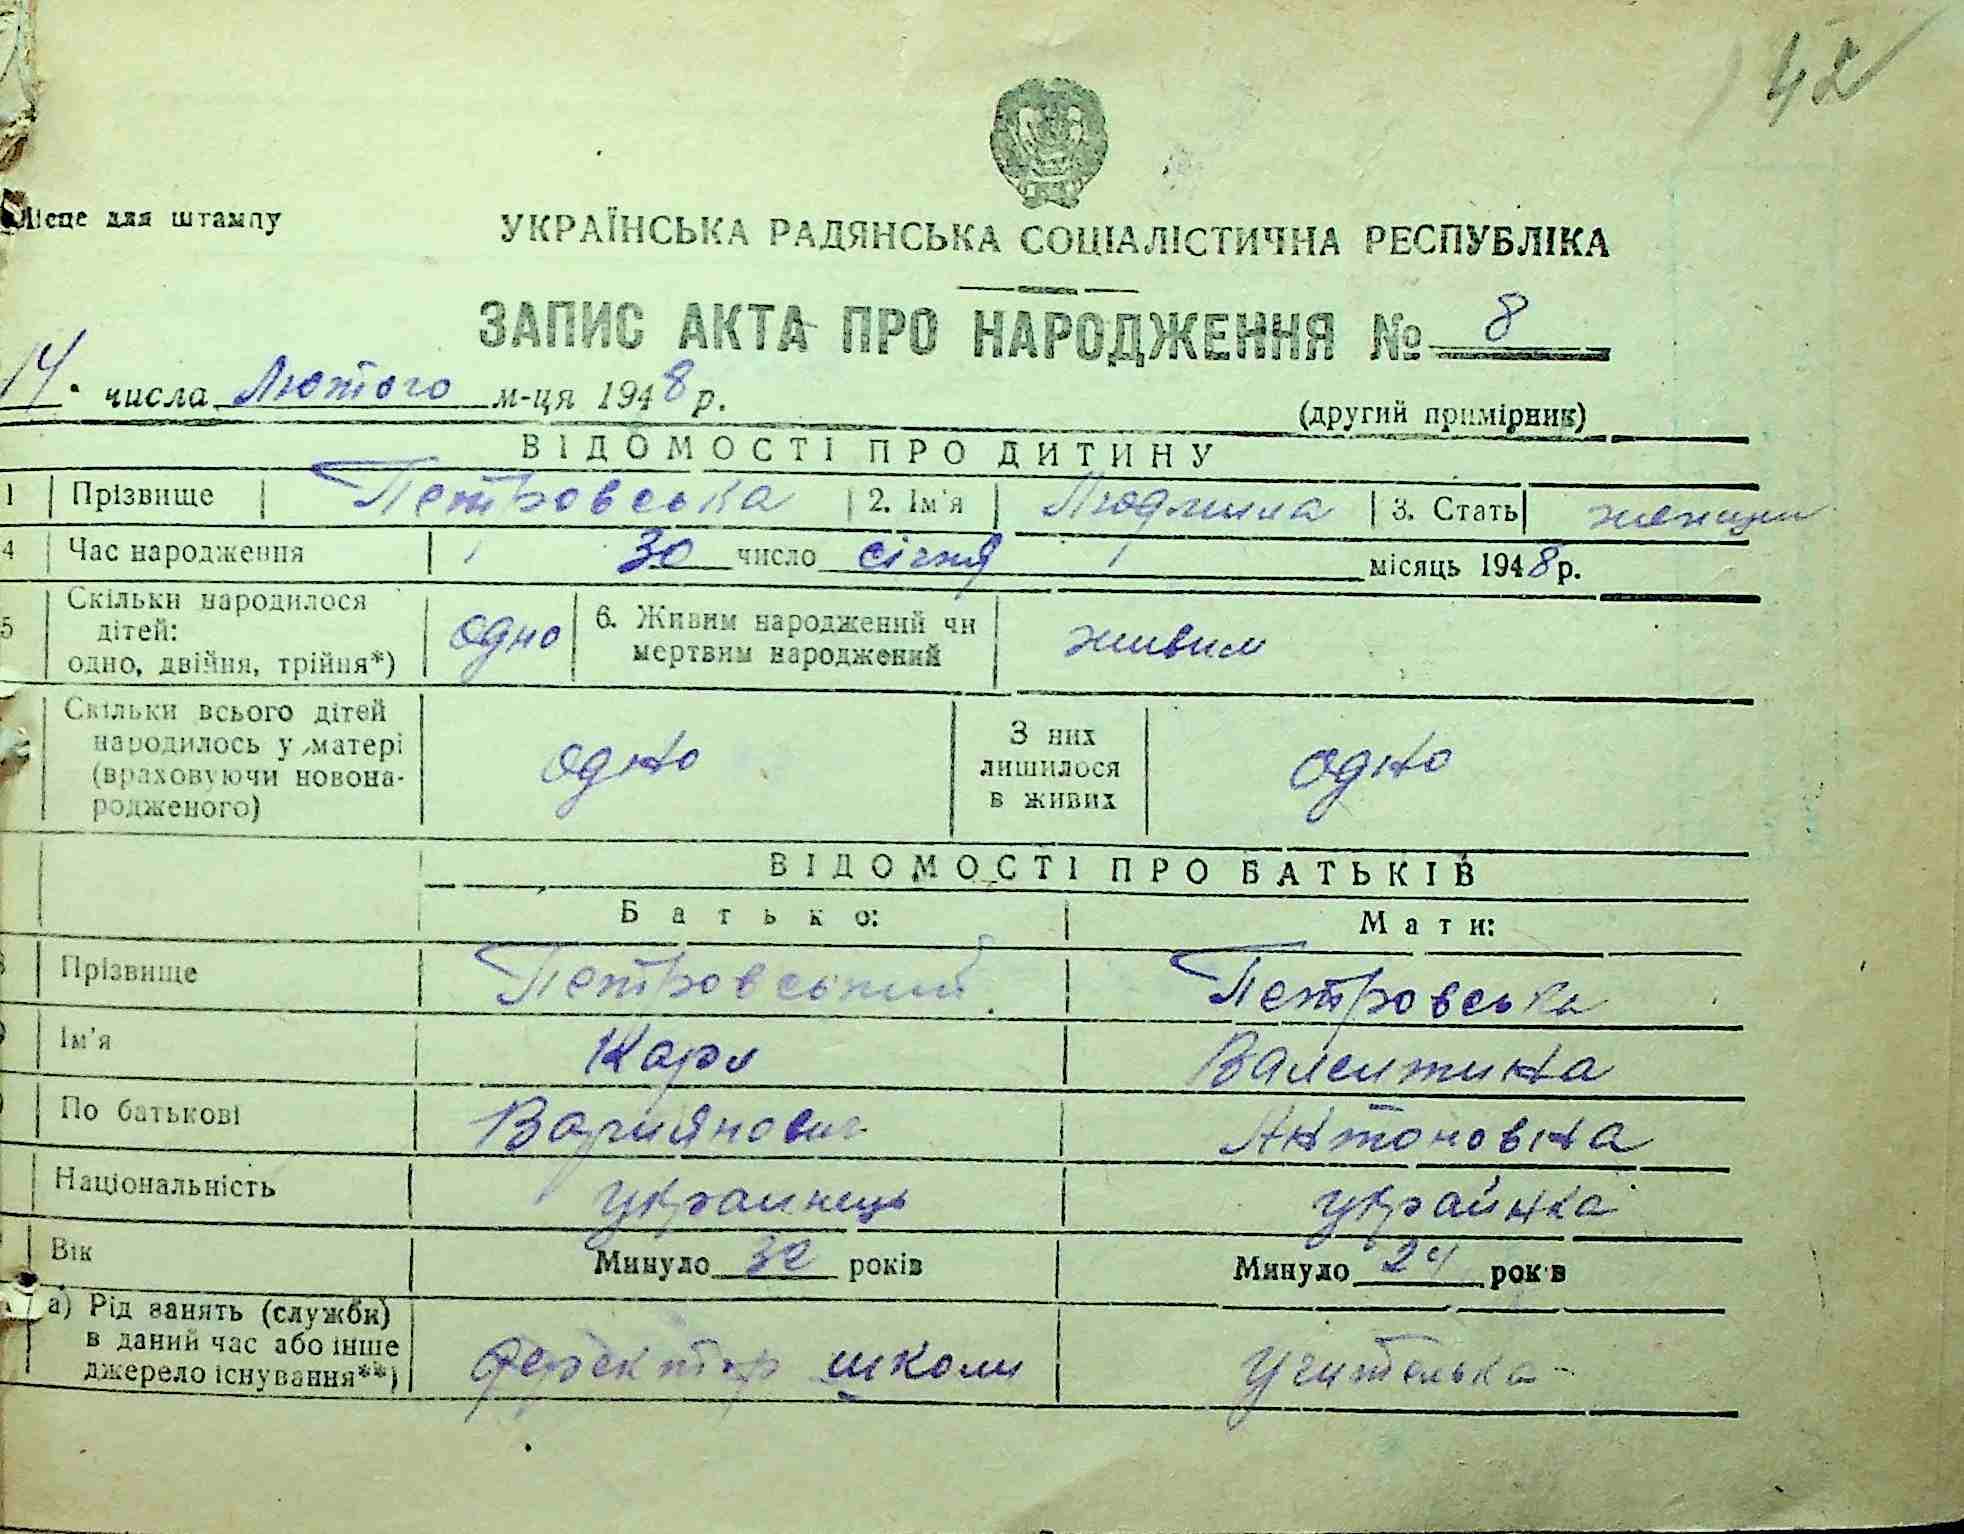 42
Місце для штампу
УКРАЇНСЬКА РАДЯНСЬКА СОЦІАЛІСТИЧНА РЕСПУБЛІКА
ЗАПИС АКТА ПРО НАРОДЖЕННЯ № 8
14. числа Лютого м-ця 1948 р.
(другий примірник)
ВІДОМОСТІ ПРО ДИТИНУ
1 Прізвище Петровська 2. Ім'я Людмила 3. Стать
4 Час народження 30 число січня місяць 1948 р.
5 Скільки народилося дітей: одно, двійня, трійня*) одно 6. Живим народжений чи мертвим народжений живим
Скільки всього дітей народилось у матері (враховуючи новонародженого) одно З них лишилося в живих одно
ВІДОМОСТІ ПРО БАТЬКІВ
Батько: Мати:
Прізвище Петровський Петровська
Ім'я Карл Валентина
По батькові Антоновна
Національність украинець украйнка
Вік Минуло 30 років Минуло 24 років
а) Рід занять (служби) в даний час або інше джерело існування**) школи Учителька